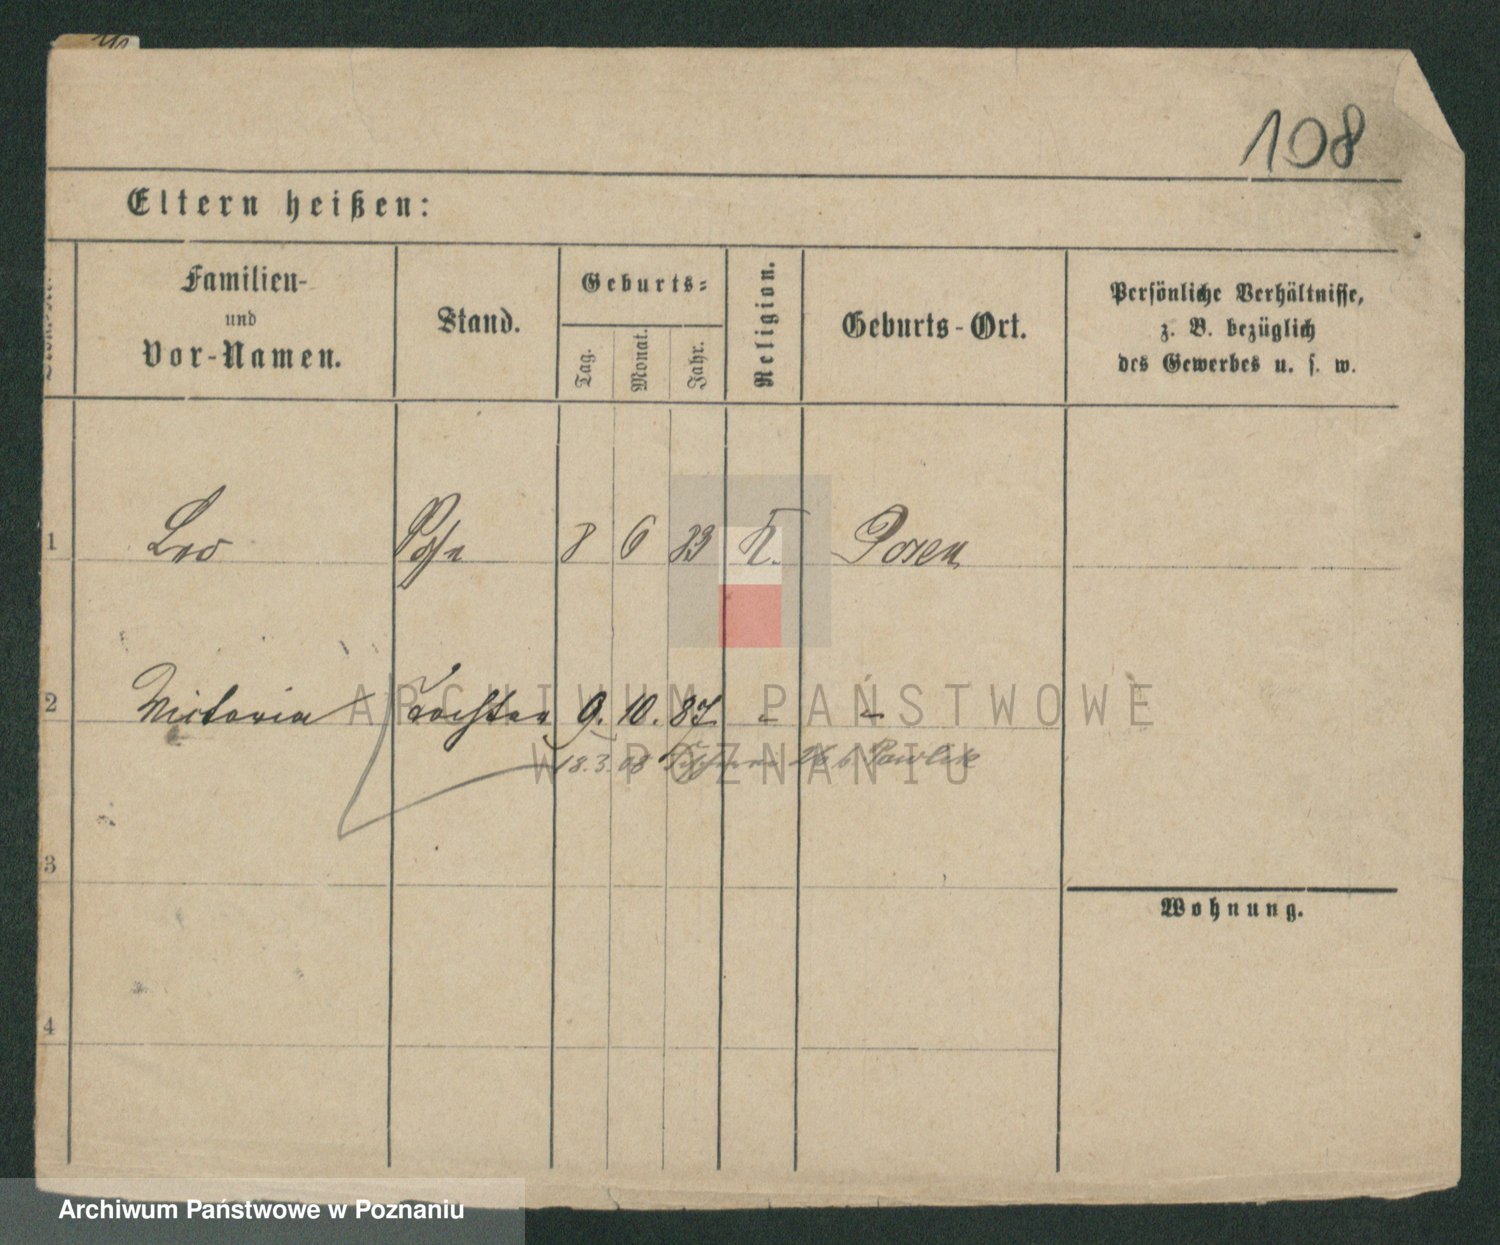 108
Eltern heißen:
Familien-
und
Vor-Namen.
Stand.
Geburts-
Tag.
Monat.
Jahr.
Religion.
Geburts-Ort.
Persönliche Verhältnisse,
z. B. bezüglich
des Gewerbes u. s. w.
1 Leo 8 6 83 K. Posen
2 Victoria Tochter 9. 10. 87 " "
18.3.08
3
Wohnung.
4
ARCHIWUM PAŃSTWOWE
W POZNANIU
Archiwum Państwowe w Poznaniu